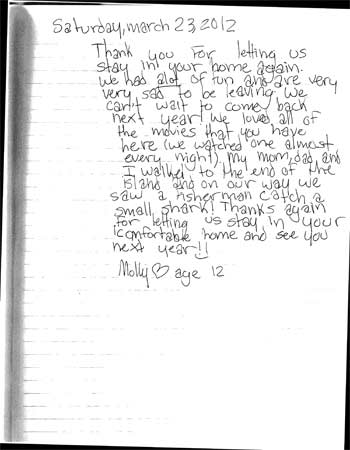 Saturday, march 23, 2012
Thank you for letting us
stay in your home again.
We had alot of fun and are very
very sad to be leaving. We
can't wait to come back
next year! We loved all of
the movies that you have
here (we watched one almost
every night). My mom, dad, and
I walked to the end of the
island and on our way we
saw a fisherman catch a
small shark! Thanks again
for letting us stay in your
comfortable home and see you
next year!!
Molly ♡ age 12